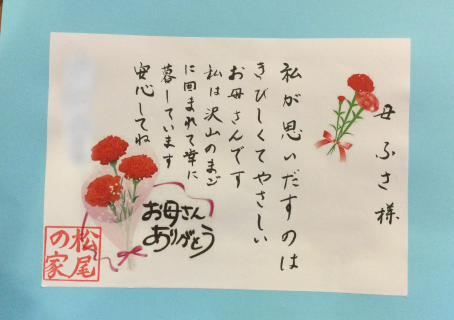 母 ふさ 様
私が思いだすのは
きびしくてやさしい
お母さんです
私は沢山のまご
に囲まれて幸に
暮しています
安心してね
お母さん
ありがとう
松尾
の家